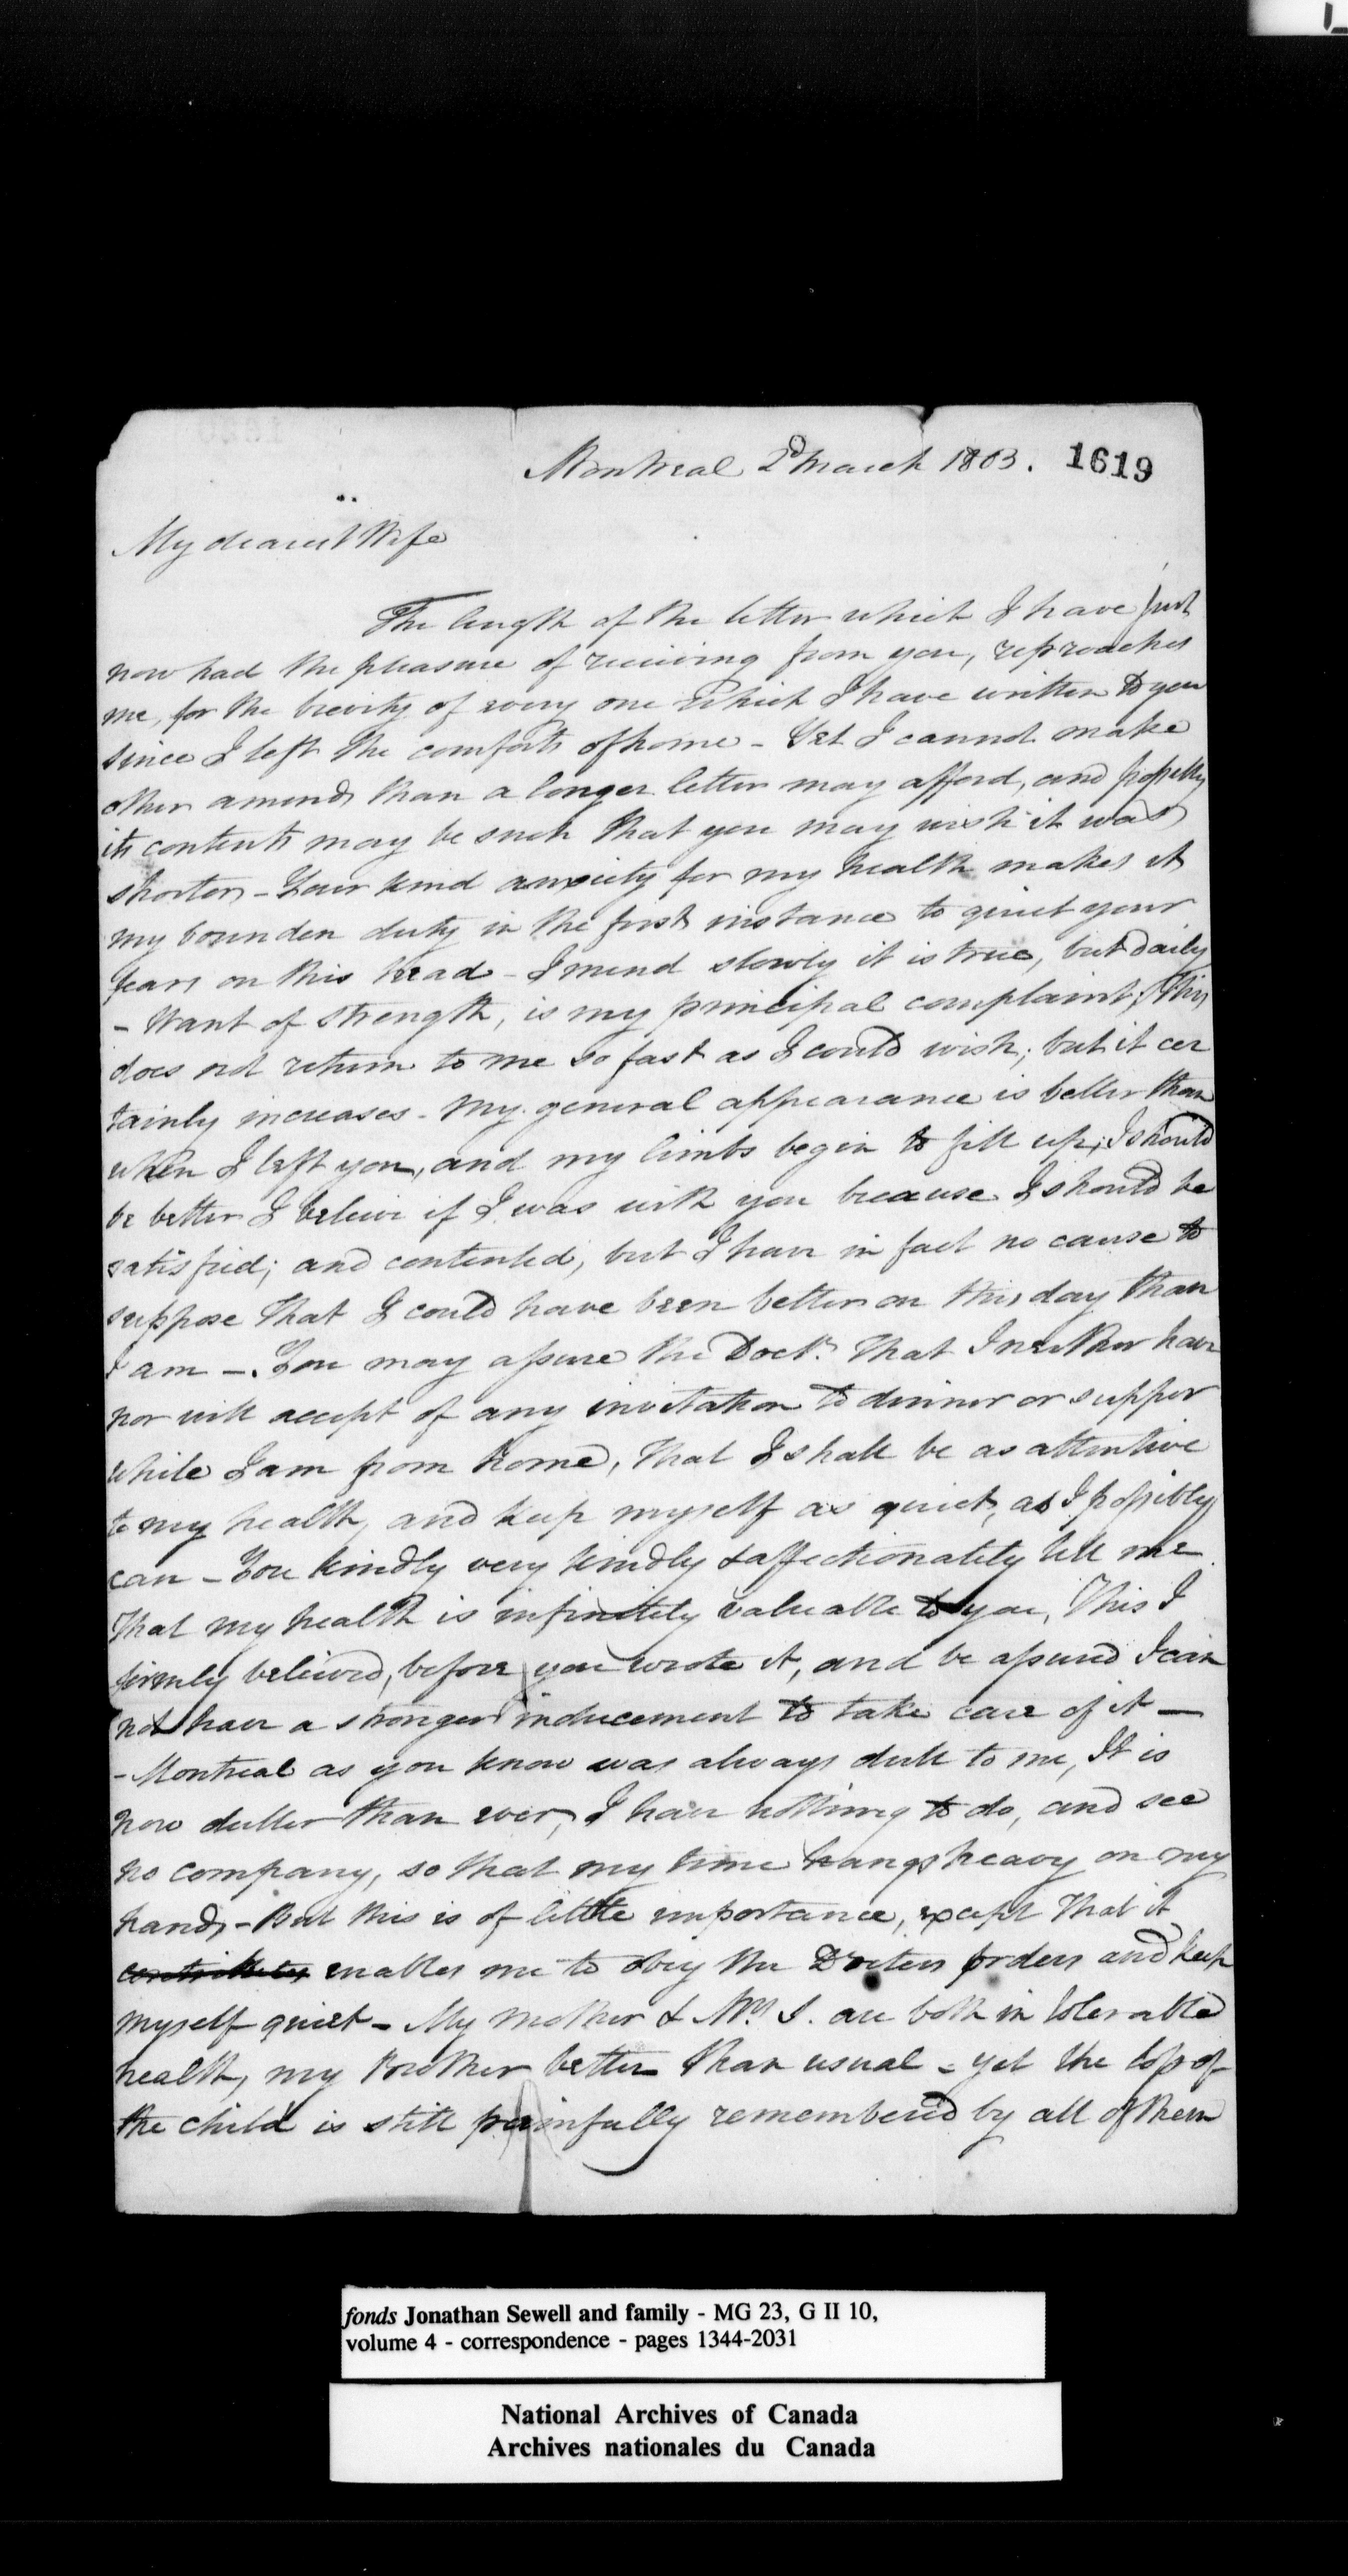 Montreal 2d March 1803. 1619
My dearest Wife
The length of the letter which I have just
now had the pleasure of receiving from you, reproaches
me, for the brevity of every one which I have written to you
since I left the comforts of home - Yet I cannot make
other amends than a longer letter may afford, and possibly
its contents may be such that you may wish it was
shorter - Your kind anxiety for my health makes it
my bounden duty in the first instance to quiet your
fears on this head - I mend slowly it is true, but daily
- Want of strength, is my principal complaint; this
does not return to me so fast as I could wish; but it cer
tainly increases - My general appearance is better than
when I left you, and my limbs begin to fill up; I should
be better I beleive if I was with you because I should be
satisfied; and contented, but I have in fact no cause to
suppose that I could have been better on this day than
I am -. You may assure the Doctr. that I neither have
nor will accept of any invitation to dinner or supper
while I am from home, that I shall be as attentive
to my health, and keep myself as quiet, as I possibly
can - You kindly very kindly & affectionately tell me
that my health is infinitely valuable to you, This I
firmly believed, before you wrote it, and be assured I can
not have a stronger inducement to take care of it —
- Montreal as you know was always dull to me, It is
now duller than ever, I have nothing to do, and see
no company, so that my time hangs heavy on my
hands, - But this is of little importance, except that it
contributes enables me to obey the Doctors orders and keep
myself quiet - My Mother & Mrs. S. are both in tolerable
health, my brother better than usual - yet the loss of
the child is still painfully remembered by all of them
fonds Jonathan Sewell and family - MG 23, G II 10,
volume 4 - correspondence - pages 1344-2031
National Archives of Canada
Archives nationales du Canada